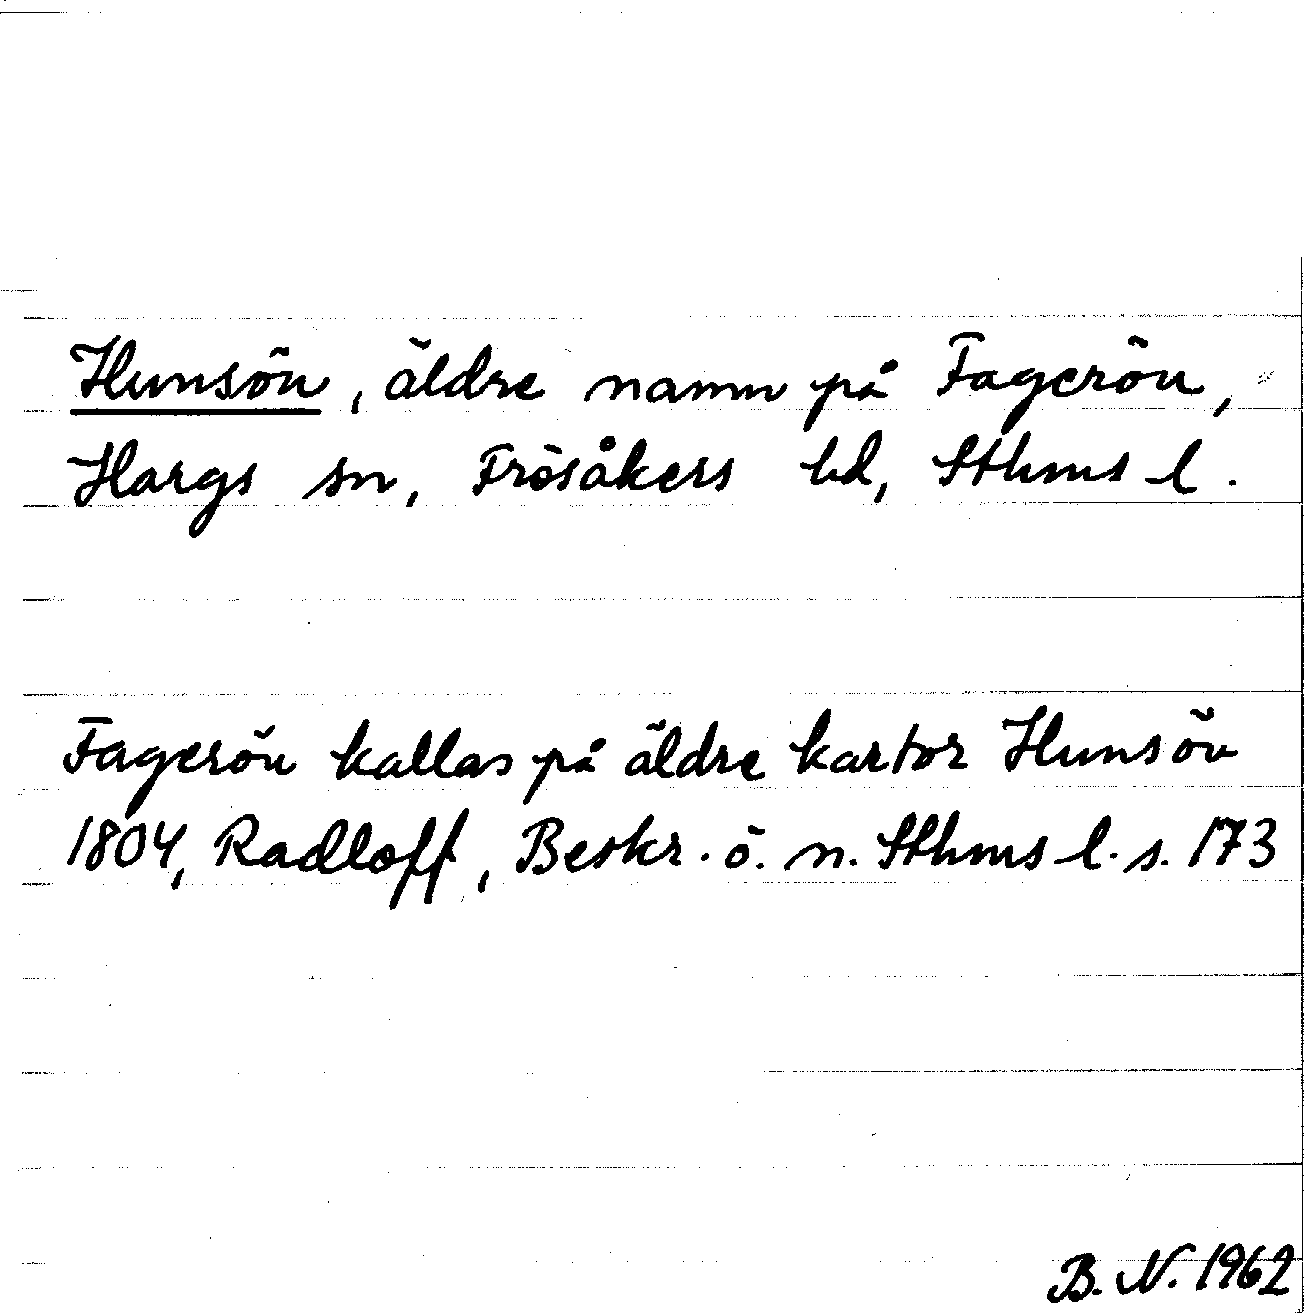 Hunsön, äldre namn på Fagerön,
Hargs sn, Frösåkers hd, Sthms l.
Fagerön kallas på äldre kartor Hunsön
1804, Radloff, Beskr. ö. n. Sthms l. s. 173
B. N. 1962